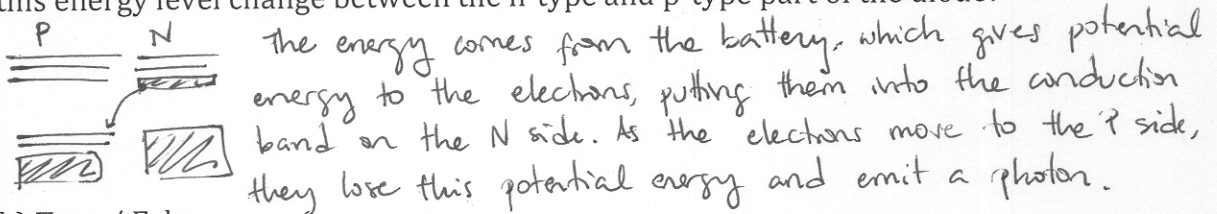 this energy level change between the n-type and p-type part of the diode.
P N The energy comes from the battery, which gives potential
energy to the electrons, putting them into the conduction
band on the N side. As the electrons move to the P side,
they lose this potential energy and emit a photon.